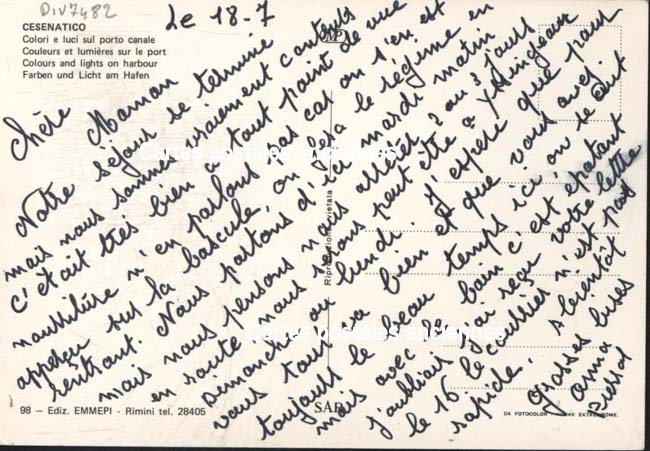 Div7482
CESENATICO
Colori e luci sul porto canale
Couleurs et lumières sur le port
Colours and lights on harbour
Farben und Licht am Hafen
Le 18-7
Chère Maman
Notre séjour se termine
mais nous sommes vraiment contents
c'était très bien à tout point de vue
nourriture n'en parlons pas car on s'en est
aperçu sur la bascule, on fera le régime en
rentrant. Nous partons d'ici mardi matin
mais nous pensons nous arrêter 2 ou 3 jours
en route nous serons peut être à
Dimanche ou lundi. J'espère que pour
vous tout va bien et que vous avez
toujours le beau temps ici on te cuit
mais avec le bain c'est épatant
j'oubliais j'ai reçu votre lettre
le 16 le courrier n'est pas
rapide. A bientôt
Grosses bises
Cartes postales anciennes
Cartes postales anciennes
Riproduzione vietata
98 – Ediz. EMMEPI - Rimini tel. 28405
SAR
DA FOTOCOLOR KODAK EKTACHROME.